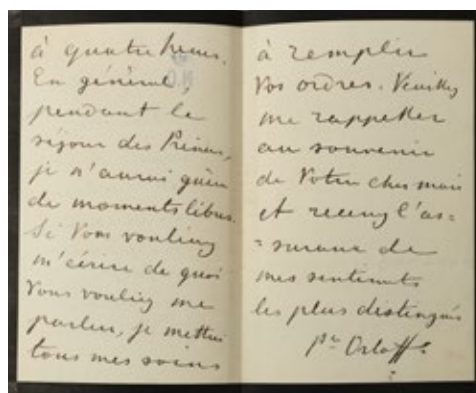 à quatre heures.
En général,
pendant le
séjour des Princes,
je n'aurai guère
de moments libres.
Si Vous vouliez
m'écrire de quoi
Vous vouliez me
parler, je mettrai
tous mes soins
à remplir
Vos ordres. Veuillez
me rappeller
au souvenir
de Votre cher mari
et recevez l'as-
=surance de
mes sentiments
les plus distingués
Pce Orloff.